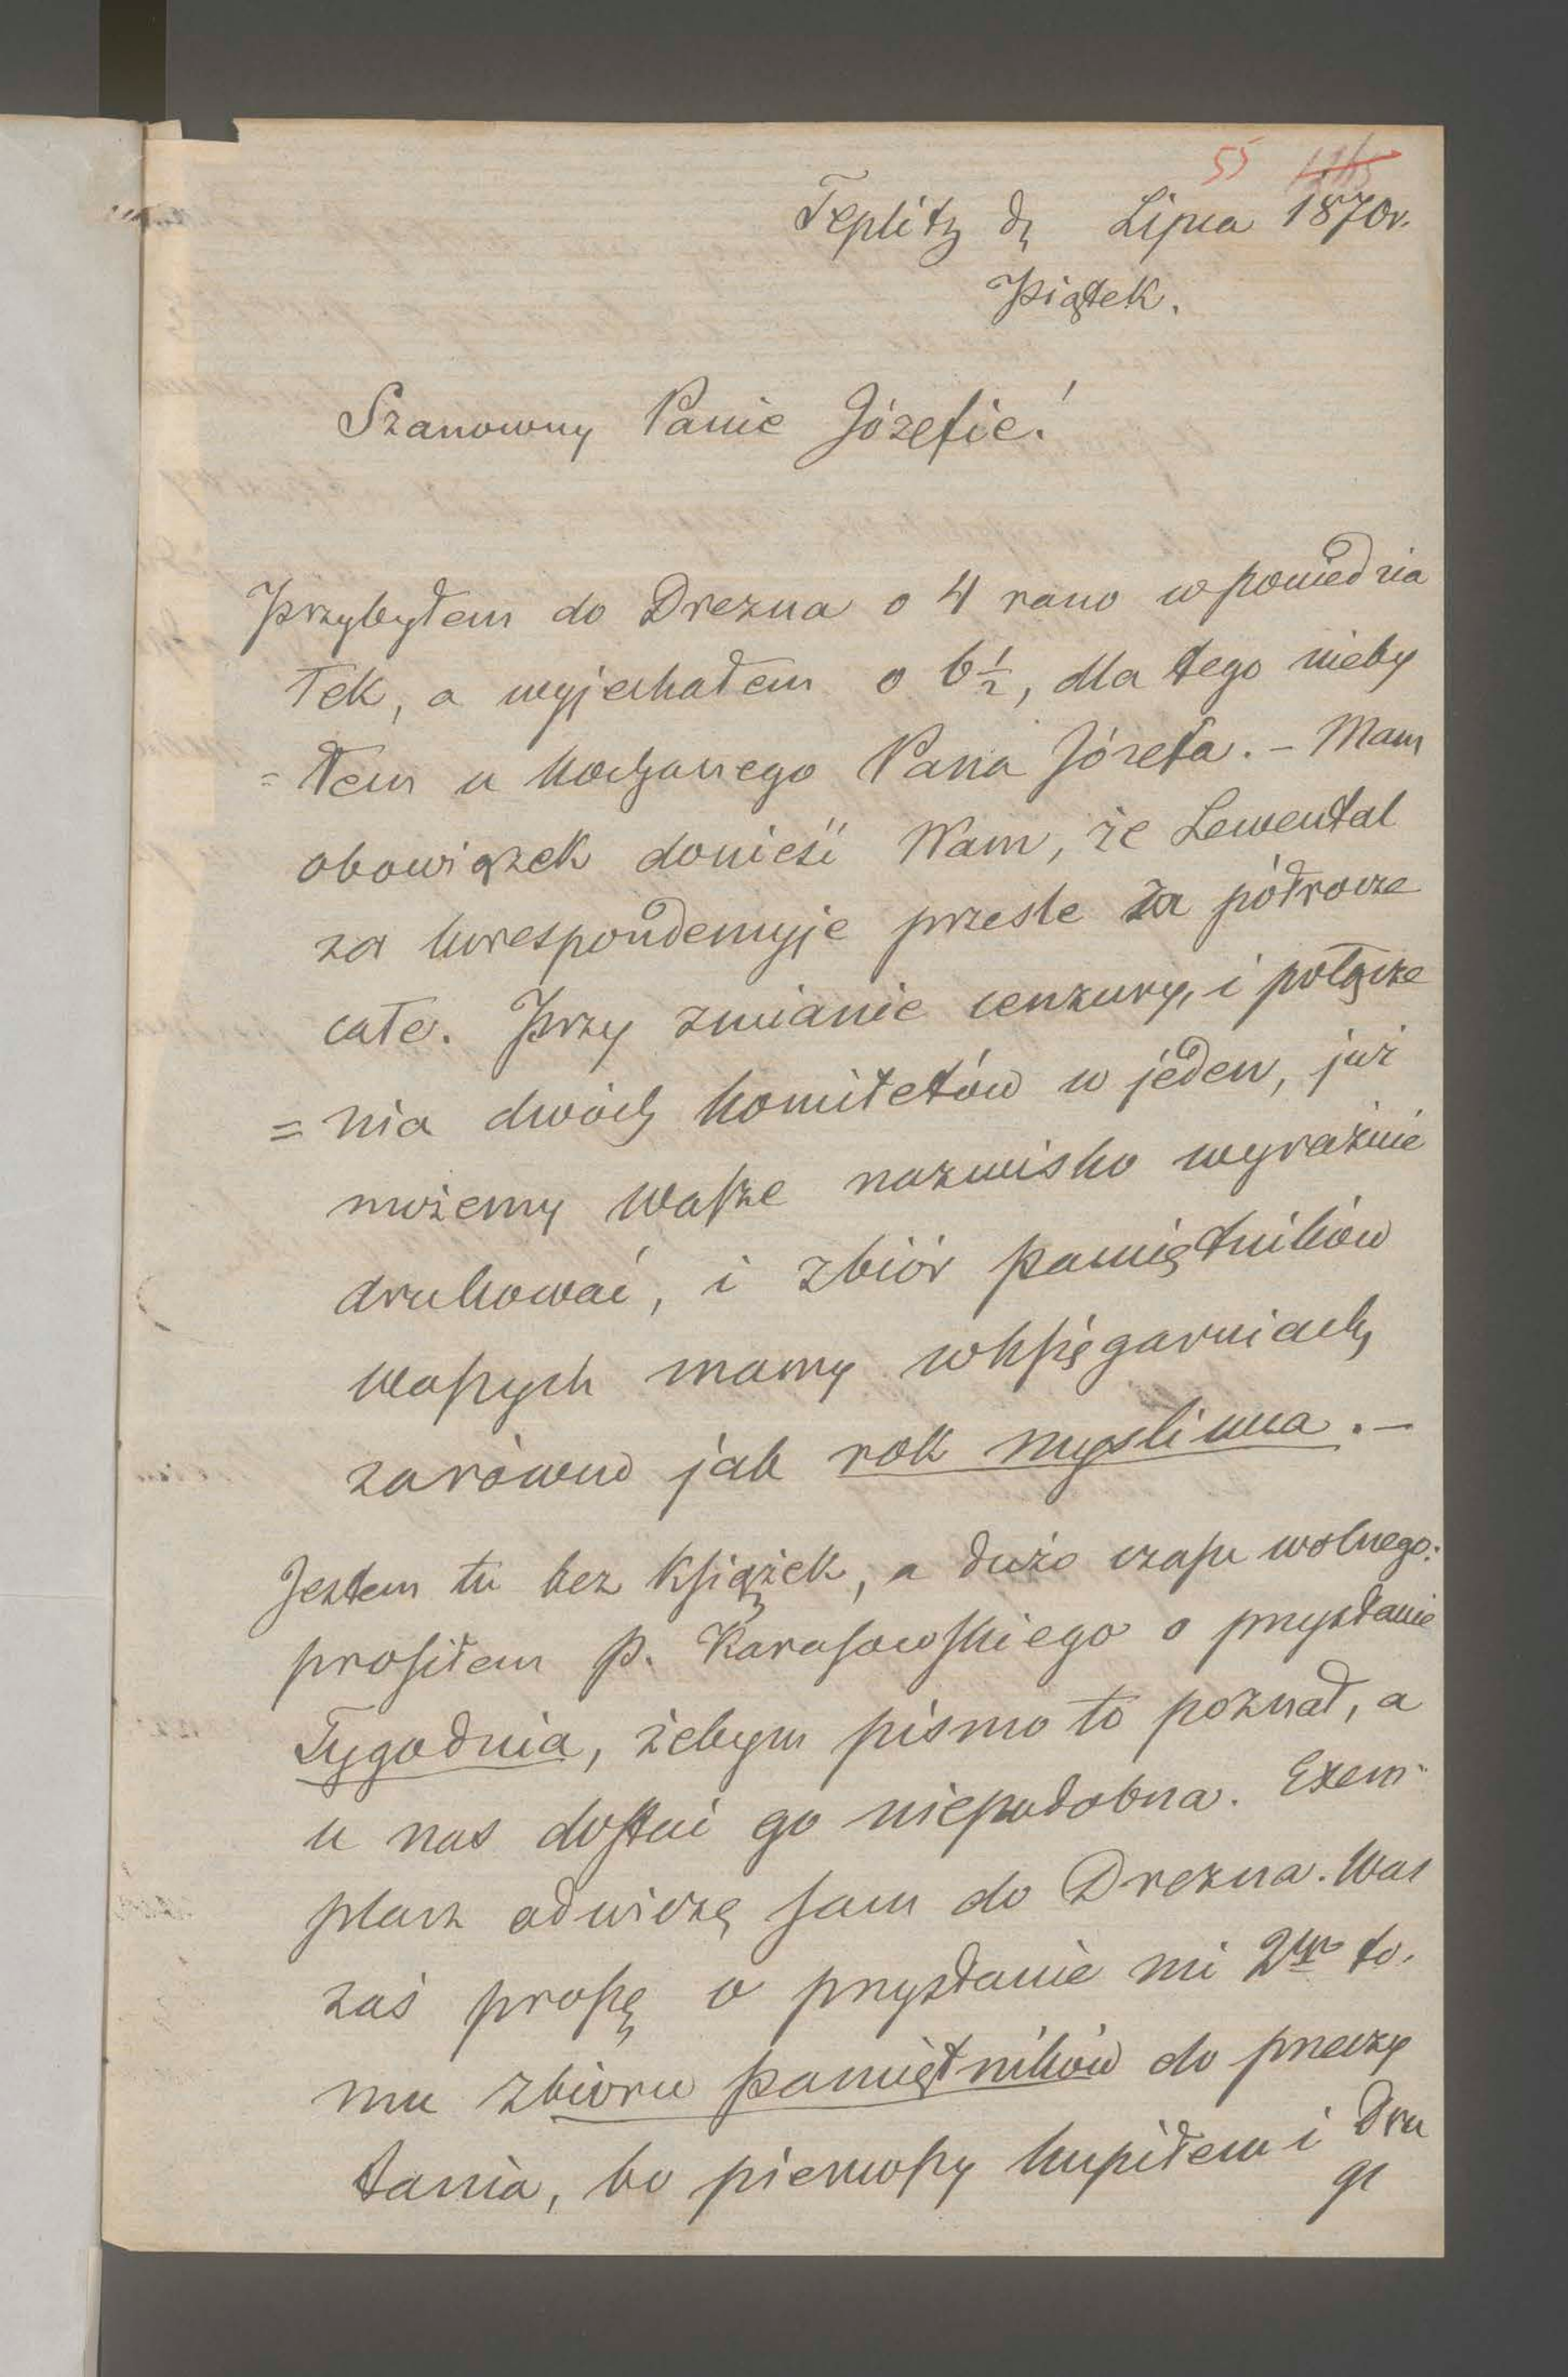 55
Teplitz d. Lipca 1870r.
Piątek.
Szanowny Panie Józefie!
Przybyłem do Drezna o 4 rano w poniedzia
łek, a wyjechałem o 6½, dla tego nieby
=łem u kochanego Pana Józefa. – Mam
obowiązek donieść Wam, że Lewental
za korespondencyje prześle za półrocze
całe. Przy zmianie cenzury, i połącze
=nia dwóch komitetów w jeden, już
możemy wasze nazwisko wyraźnie
drukować, i zbiór pamiętników
waszych mamy w księgarniach,
zarówno jak rok myśliwca. –
Jestem tu bez książek, a dużo czasu wolnego:
prosiłem p. Karasowskiego o przysłanie
Tygodnia, żebym pismo to poznał, a
u nas dostać go niepodobna. Exem-
plarz odwiozę sam do Drezna. Was
zaś proszę o przysłanie mi 2go to.
mu zbioru pamiętników do przeczy
tania, bo pierwszy kupiłem i dru
gi